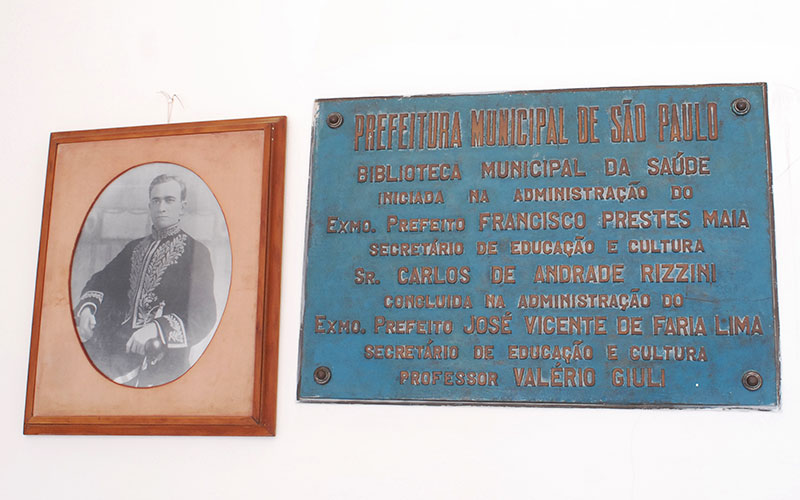 PREFEITURA MUNICIPAL DE SÃO PAULO
BIBLIOTECA MUNICIPAL DA SAÚDE
INICIADA NA ADMINISTRAÇÃO DO
EXMO. PREFEITO FRANCISCO PRESTES MAIA
SECRETÁRIO DE EDUCAÇÃO E CULTURA
SR. CARLOS DE ANDRADE RIZZINI
CONCLUIDA NA ADMINISTRAÇÃO DO
EXMO. PREFEITO JOSÉ VICENTE DE FARIA LIMA
SECRETÁRIO DE EDUCAÇÃO E CULTURA
PROFESSOR VALÉRIO GIULI